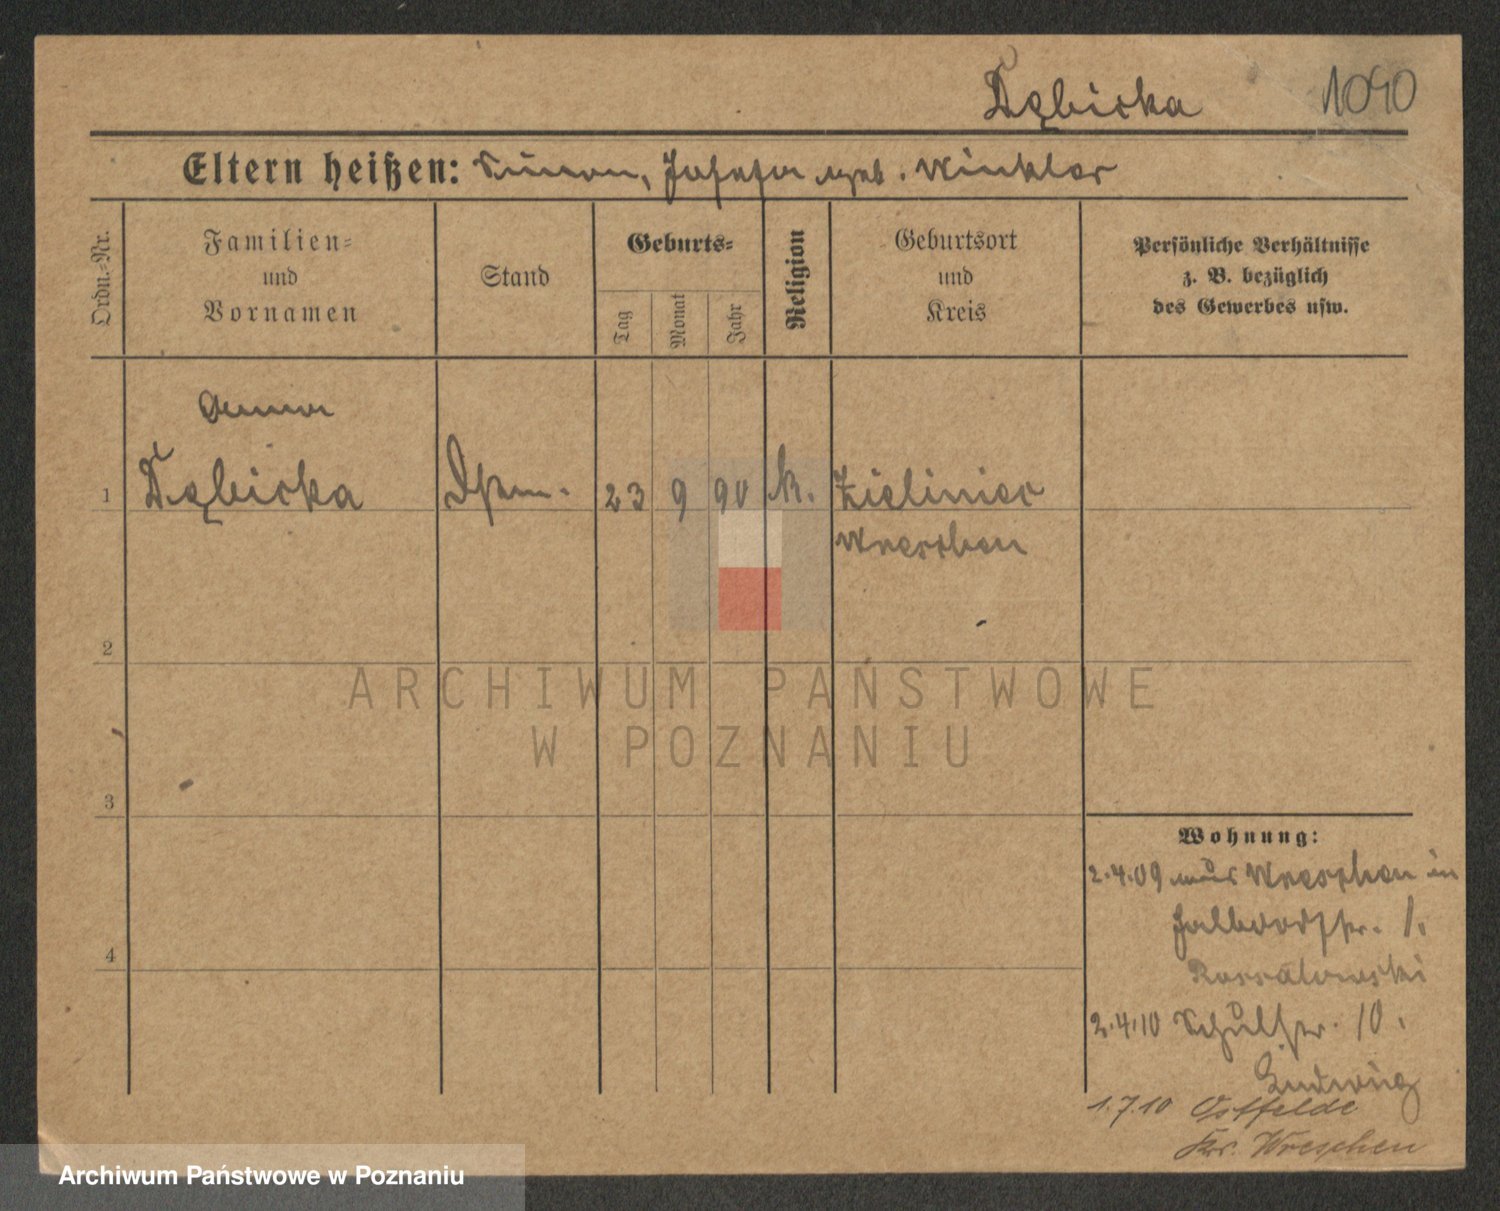 Dębicka 1090
Eltern heißen: Simon, Josefa geb. Winkler
Ordn.-Nr.
Familien-
und
Vornamen
Stand
Geburts-
Tag
Monat
Jahr
Religion
Geburtsort
und
Kreis
Persönliche Verhältnisse
z. B. bezüglich
des Gewerbes usw.
Anna
1 Dębicka 23 9 90 k. Zieliniec
Wreschen
2
ARCHIWUM PAŃSTWOWE
W POZNANIU
3
Wohnung:
2.4.09 aus Wreschen in
Halbdorfstr. 1.
2.4.10 Schulstr. 10.
Ludwig
1.7.10 Ostfelde
Kr. Wreschen
4
Archiwum Państwowe w Poznaniu